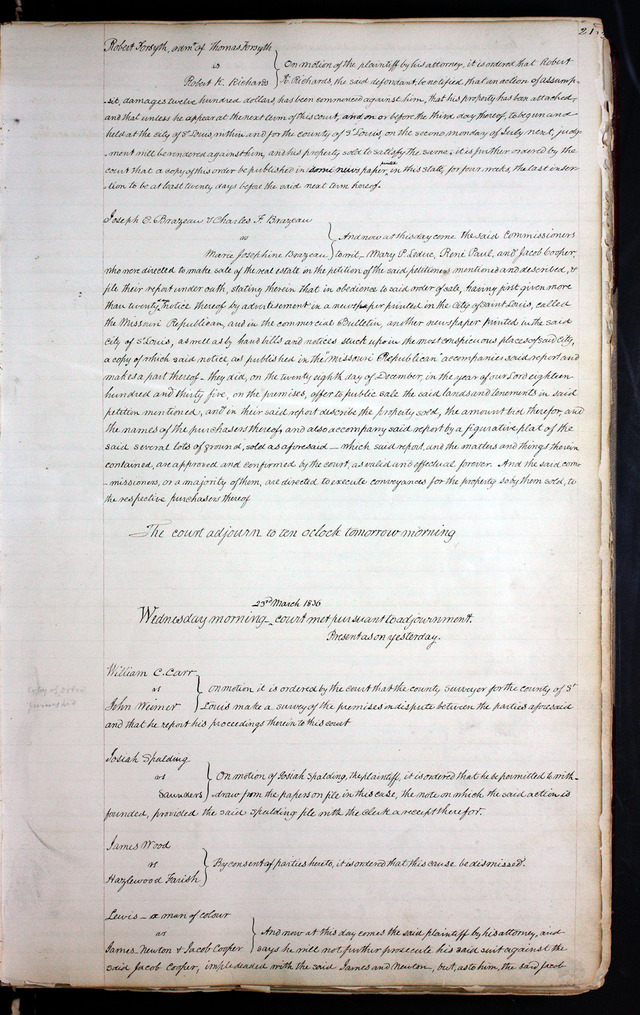 21
Robert Forsyth, admr of Thomas Forsyth
vs
Robert K. Richards
On motion of the plaintiff by his attorney, it is ordered that Robert
K. Richards, the said defendant, be notified that an action of assump-
sit, damages twelve hundred dollars, has been commenced against him, that his property has been attached,
and that unless he appear at the next term of this court, and on or before the third day thereof, to be gun and
held at the city of St Louis, within and for the county of St Louis on the second monday of July next, judg-
ment will be rendered against him, and his property sold to satisfy the same. it is further ordered by the
court that a copy of this order be published in some newspaper in this state, for four weeks, the last inser-
tion to be at least twenty days before the said next term hereof.
Joseph C. Brazeau & Charles F. Brazeau
vs
Marie Josephine Brazeau
And now at this day come the said commissioners
towit - Mary P. Leduc, René Paul, and Jacob Cooper,
who were directed to make sale of the real estate in the petition of the said petitioners mentioned and described, &
file their report under oath, stating therein that in obedience to said order of sale, having first given more
than twenty notice thereof by advertisement in a newspaper printed in the City of Saint Louis, called
the Missouri Republican, and in the commercial Bulletin, another newspaper printed in the said
city of St Louis, as well as by hand bills and notices stuck up in the most conspicuous places of said City,
a copy of which said notice, as published in the "Missouri Republican" accompanies said report and
makes a part thereof - they did, on the twenty eighth day of December, in the year of our Lord eighteen
hundred and thirty five, on the premises, offer to public sale the said lands and tenements in said
petition mentioned, and in their said report describe the property sold, the amount bid therefor, and
the names of the purchasers thereof, and also accompany said report by a figurative plat of the
said several lots of ground, sold as aforesaid - which said report, and the matters and things therein
contained, are approved and confirmed by the court, as valid and effectual forever. And the said com-
missioners, or a majority of them, are directed to execute conveyances for the property so by them sold, to
the respective purchasers thereof
The court adjourn to ten oclock tomorrow morning
23rd March 1836
Wednesday morning - court met pursuant to adjournment.
Present as on yesterday.
copy of order
furnished
William C. Carr
vs
John Weimer
On motion it is ordered by the court that the county surveyor for the county of St
Louis make a survey of the premises in dispute between the parties aforesaid
and that he report his proceedings therein to this court
Josiah Spalding
vs
Saunders
On motion of Josiah Spalding, the plaintiff, it is ordered that he be permitted to with-
draw from the papers on file in this case, the note on which the said action is
founded, provided the said Spalding file with the clerk a receipt therefor.
James Wood
vs
Hazlewood Farish
By consent of parties hereto, it is ordered that this cause be dismissed.
Lewis - a man of colour
vs
James Newton & Jacob Cooper
And now at this day comes the said plaintiff by his attorney, and
says he will not further prosecute his said suit against the
said Jacob Cooper, impleaded with the said James and Newton, but, as to him, the said Jacob